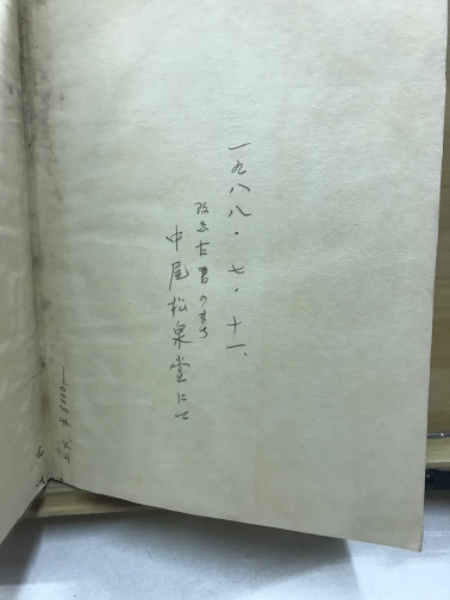 一九八八・七・十一、
阪急古書のまち
中尾松泉堂にて